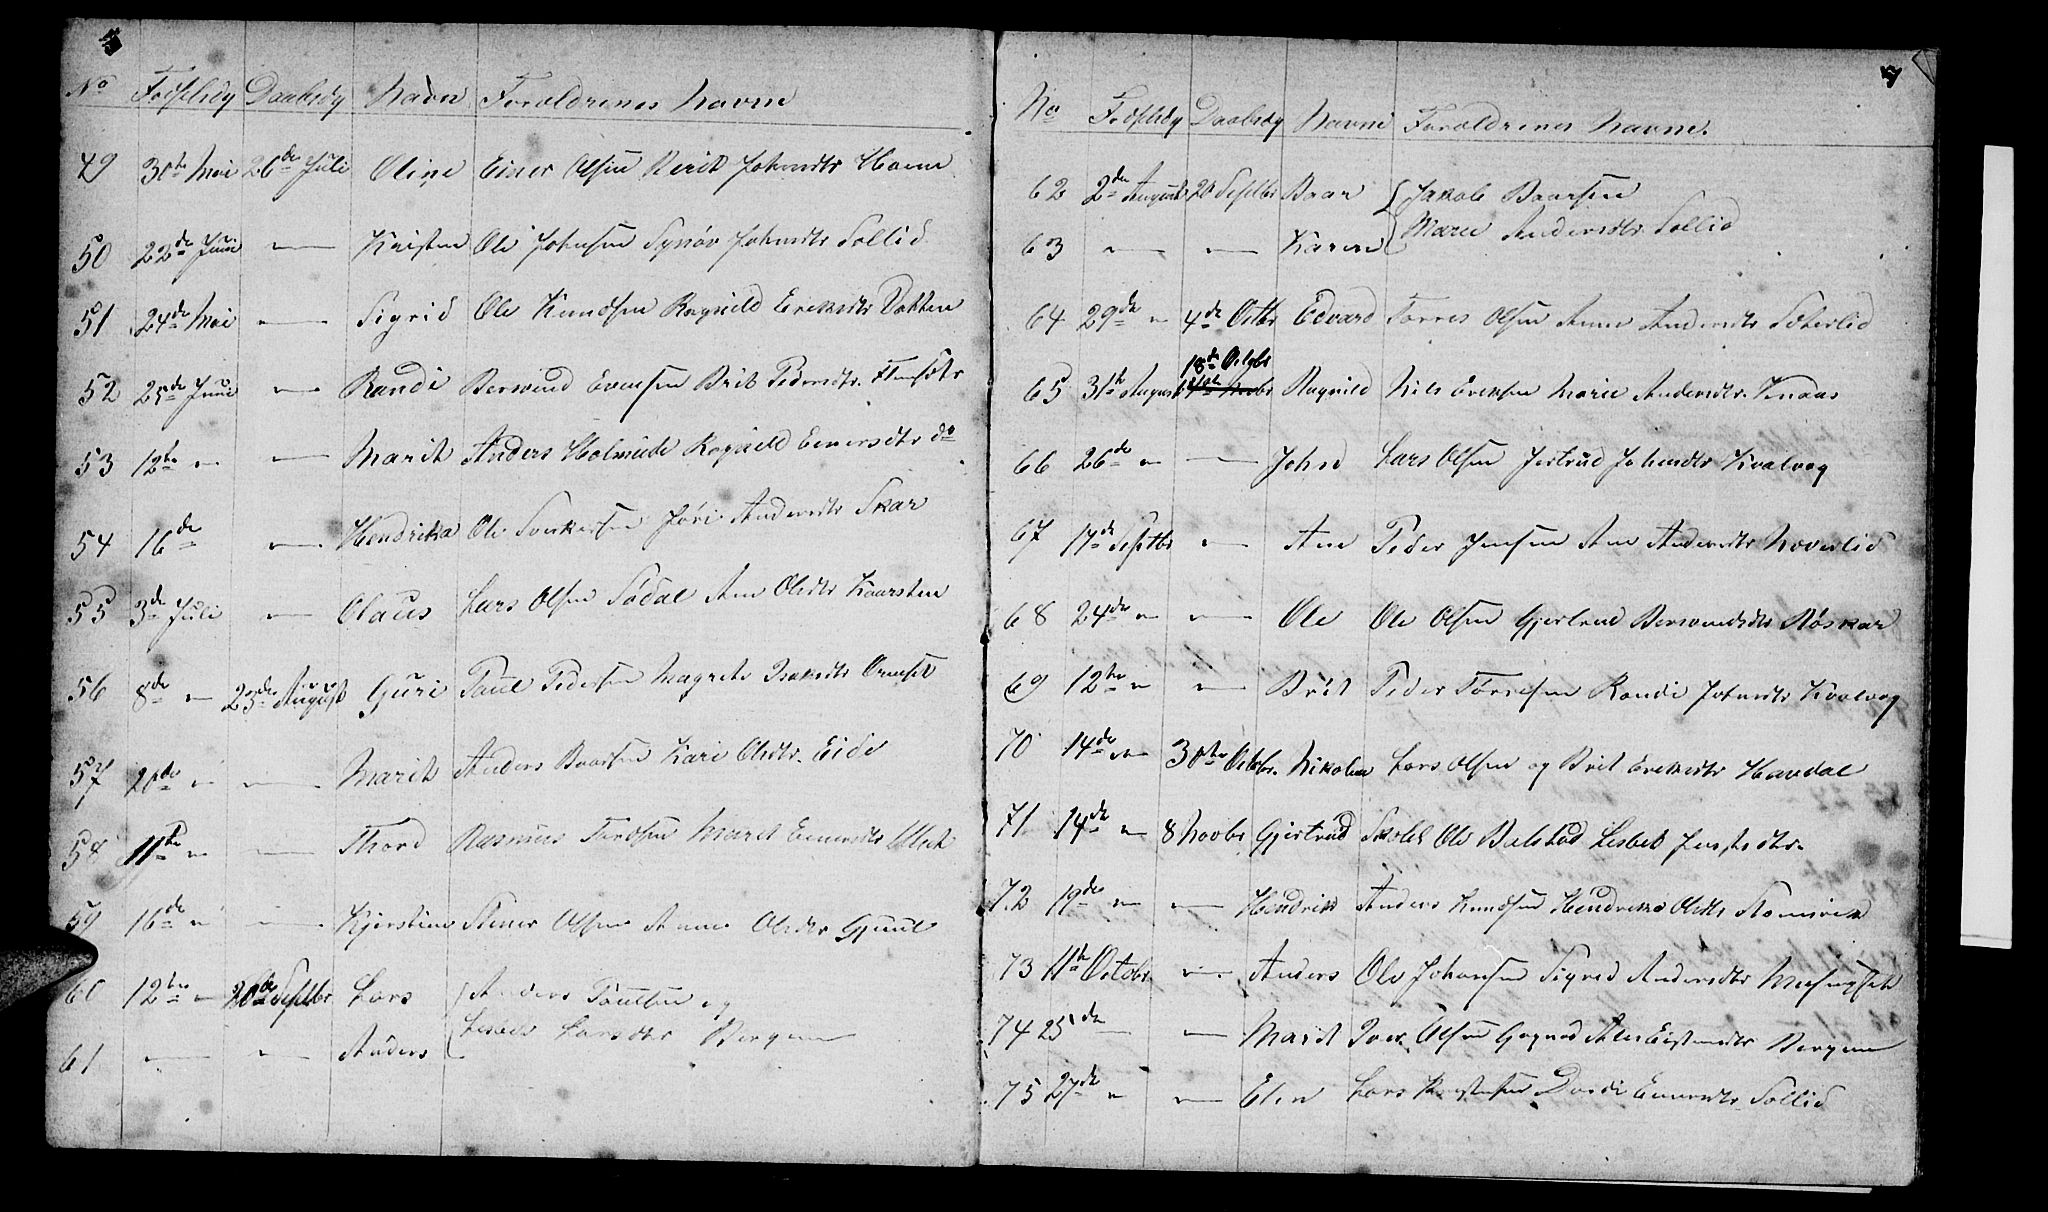 No Fødselsdg Daabsdg Navn Forældrenes Navne
49 30te Mai 26de Juli Oline Einer Olsen Berit Johnsdtr Hoem
50 22de Juni — Kristen Ole Johnsen Synøv Johnsdtr Sollid
51 24de Mai — Sigrid Ole Knudsen Ragnild Eriksdtr Dokken
52 25de Juni — Randi Bersvend Evensen Brit Pedersdtr
53 12te " — Marit Anders Ragnild Einersdtr do
54 16de — Hendrika Ole Jøri Andersdtr Skar
55 3de Juli — Olaus Lars Olsen Sødal Ane Olsdtr Kaarsten
56 8de " 23de August Guri Paul Pedersen Magrete Ormset
57 20de " — Marit Anders Baarsen Kari Olsdtr. Eide
58 11te " — Thord Rasmus Tordsen Marit Einersdtr
59 16de " — Kjerstine Stener Olsen Anne Olsdtr Gjuul
60 12te " 20de Septbr. Lars Anders Paulsen og
61 — — Anders Larsdtr Bergem
7
No Fødselsdg Daabsdg Navne Forældrenes Navne.
62 2den August 20 Septbr Baar Jakob Baarsen
63 — — Karen Marie Andersdtr Sollid
64 29de " 4de Octbr Edvard Torres Olsen Anne Andersdtr Sæterlid
18de Octbr
65 31te August Ragnild Nils Eriksen Marie Andersdtr. Knaas
66 26de " — John Lars Olsen Jertrud Johnsdtr Kvalvag
67 17de Septbr — Ane Peder Jensen Ane Andersdtr Hoverlid
68 24de " — Ole Ole Olsen Gjertrud Bersvendsdtr Røskar
69 12te " — Brit Peder Torresen Randi Johnsdtr Kvalvag
70 14de " 30te Octobr. Nikoline Lars Olsen og Brit Eriksdtr Haudal
71 14de " 8 Novbr Gjertrud Ole Lisbet
72 19de " — Hendrik Anders Knudsen Hendrikke Olsdtr
73 11te Octobr — Anders Ole Johansen Sigrid Andersdtr
74 25de — Marit Iver Olsen Bergem
75 27de " — Elen Lars Dordi Einersdtr Sollid